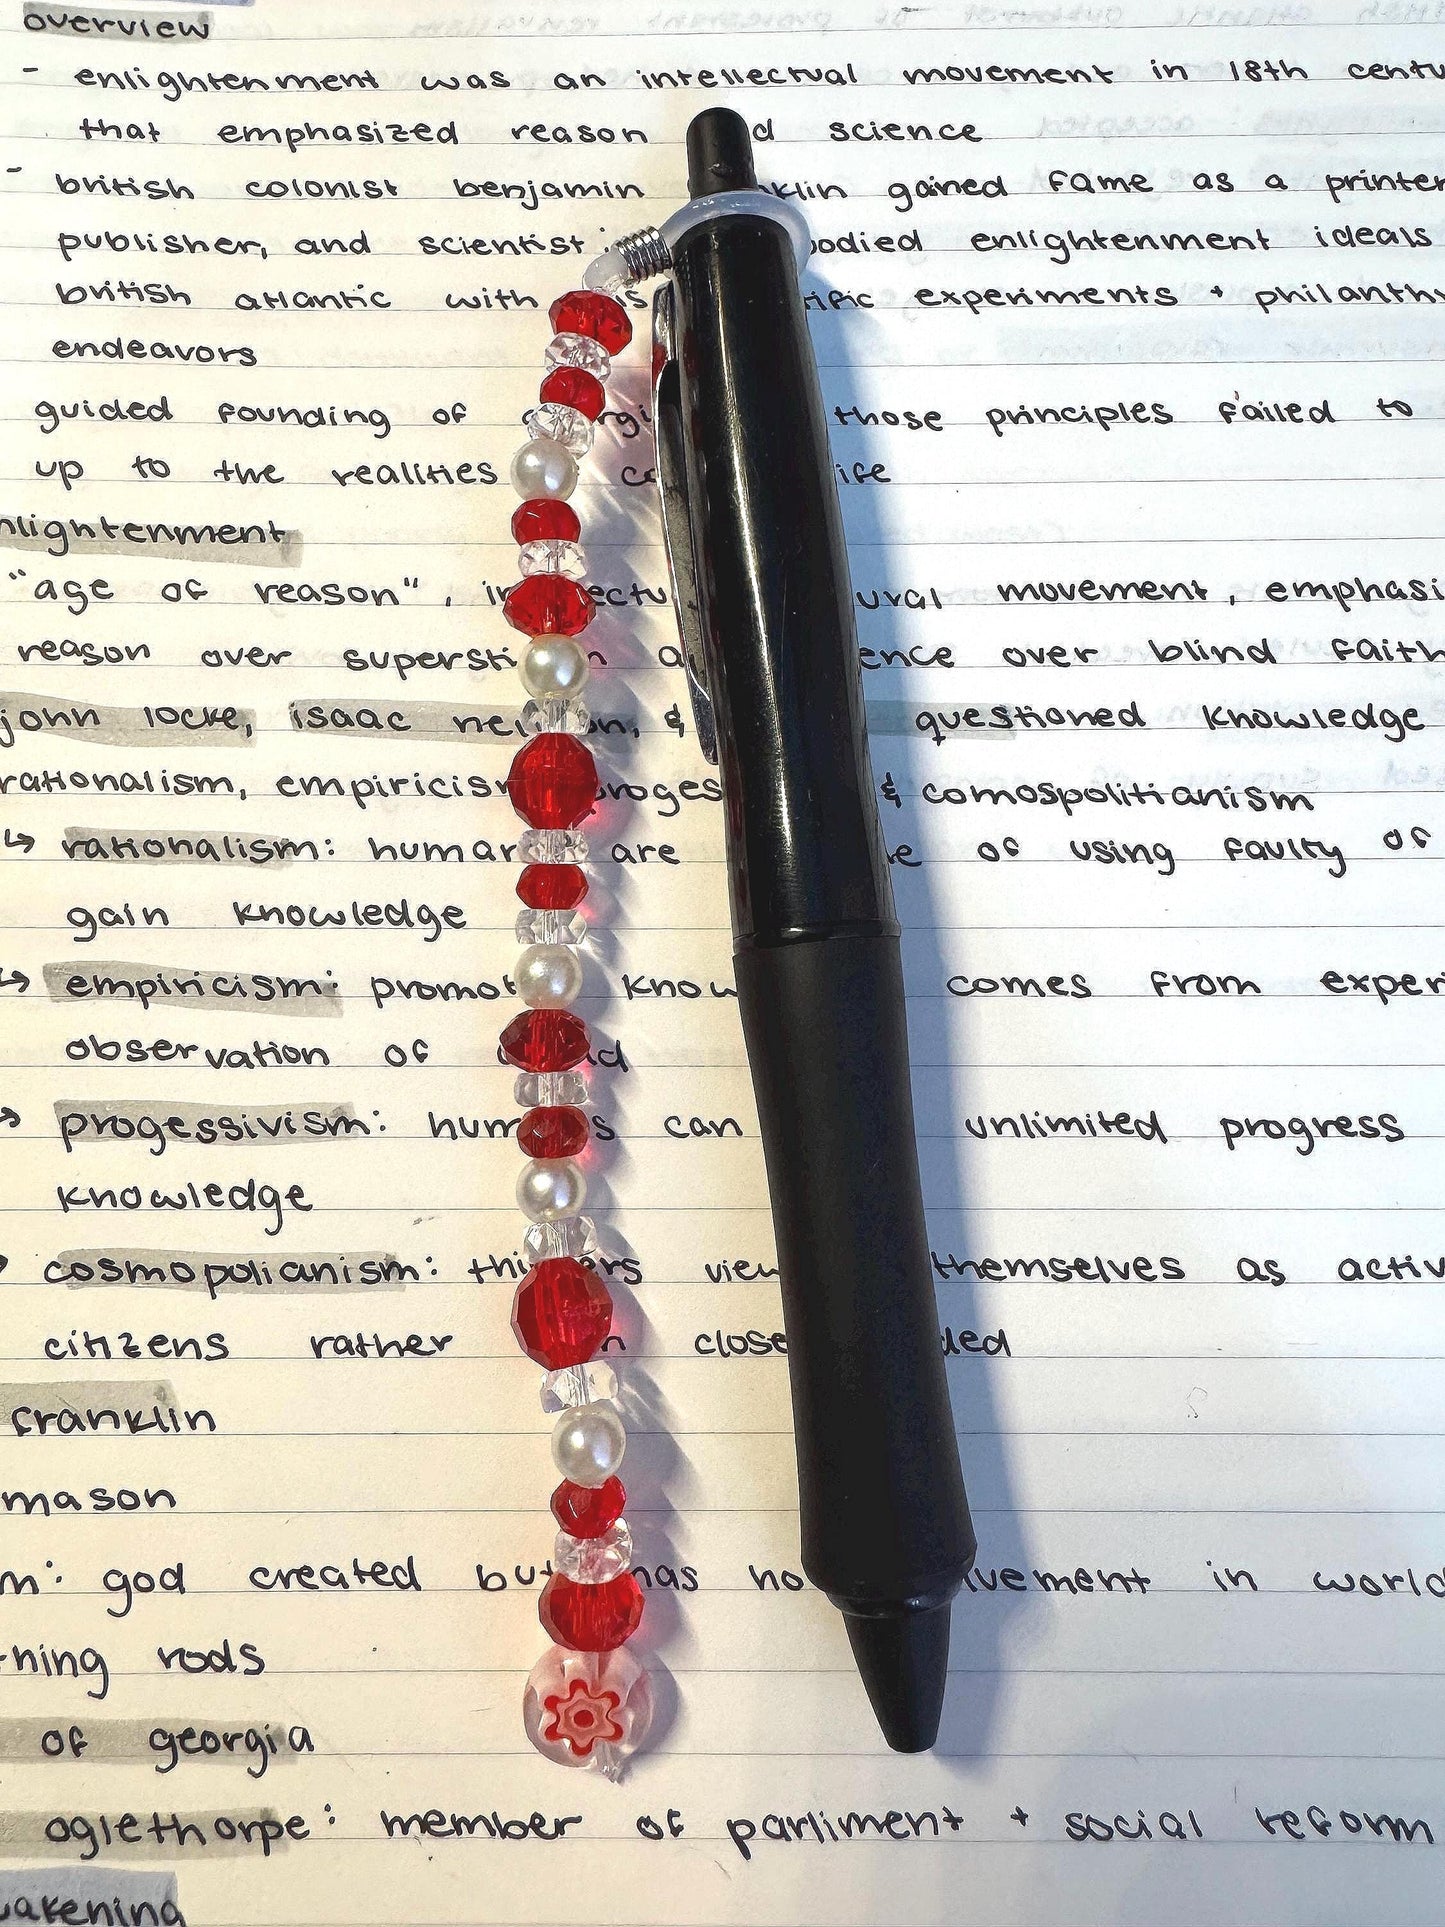 overview
- enlightenment was an intellectual movement in 18th centu
that emphasized reason d science
- british colonist benjamin klin gained fame as a printer
publisher, and scientist: odied enlightenment ideals
british atlantic with is ific experiments + philanthr
endeavors
guided founding of rgi those principles failed to
up to the realities co ife
nlightenment
"age of reason", in ectu ural movement, emphasi
reason over supersti n a ence over blind faith
john locke, isaac new on, & questioned knowledge
rationalism, empiricism proges & comospolitianism
↳ rationalism: human are le of using faulty of
gain knowledge
↳ empiricism: promot know comes from exper
observation of d
progessivism: hum s can unlimited progress
knowledge
cosmopolianism: thi ers view themselves as activ
citizens rather n close ded
franklin
mason
m: god created but has no lvement in world
thing rods
of georgia
oglethorpe: member of parliment + social reform
wakening